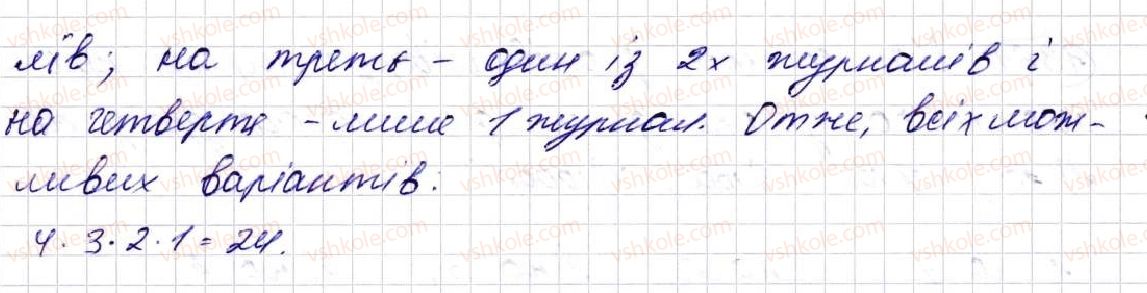 лів; на третє - один із 2х журналів і
на четверте - лише 1 журнал. Отже, всіх мож-
ливих варіантів:
4 · 3 · 2 · 1 = 24.